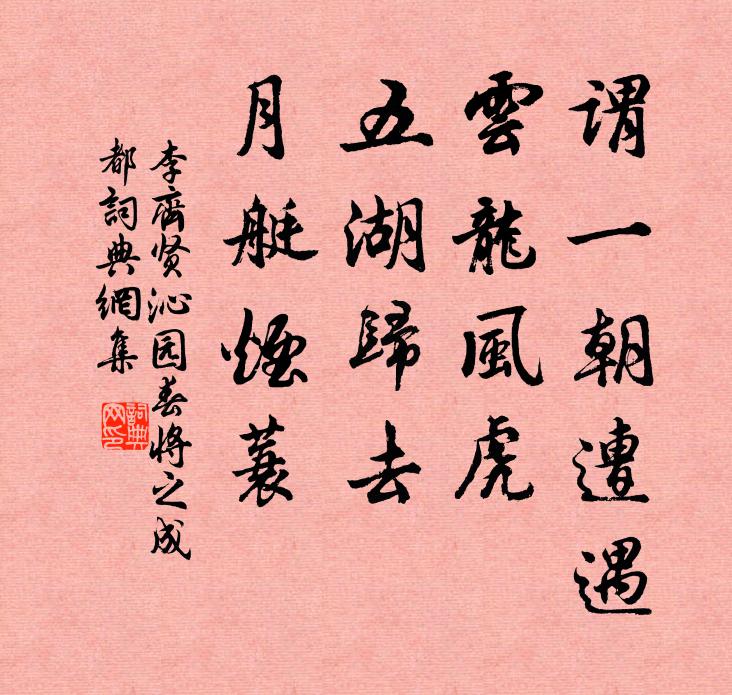 謂一朝遭遇
雲龍風虎
五湖歸去
月艇煙蓑
李齊贤沁园春将之成
都詞典網集
詞典网印